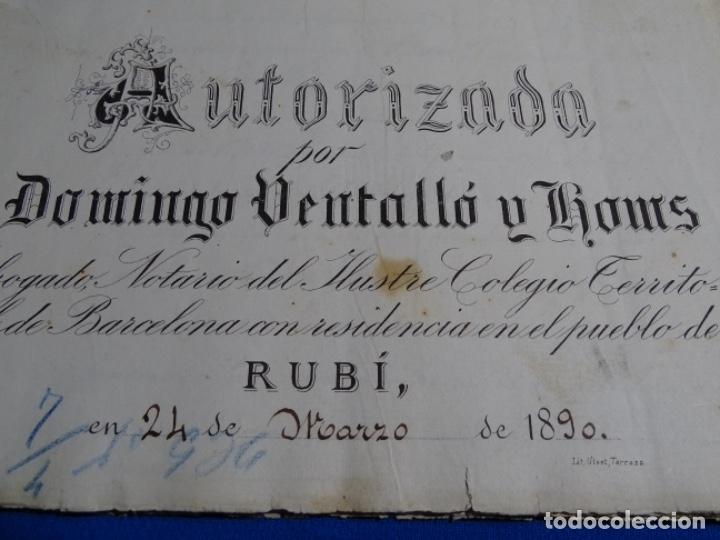 Autorizada
por
Domingo Ventalló y Homs
bogado, Notario del Ilustre Colegio Territo-
l de Barcelona con residencia en el pueblo de
RUBÍ,,
en 24 de Marzo de 1890.
7/4
Lit. Utset, Tarrasa
todocoleccion